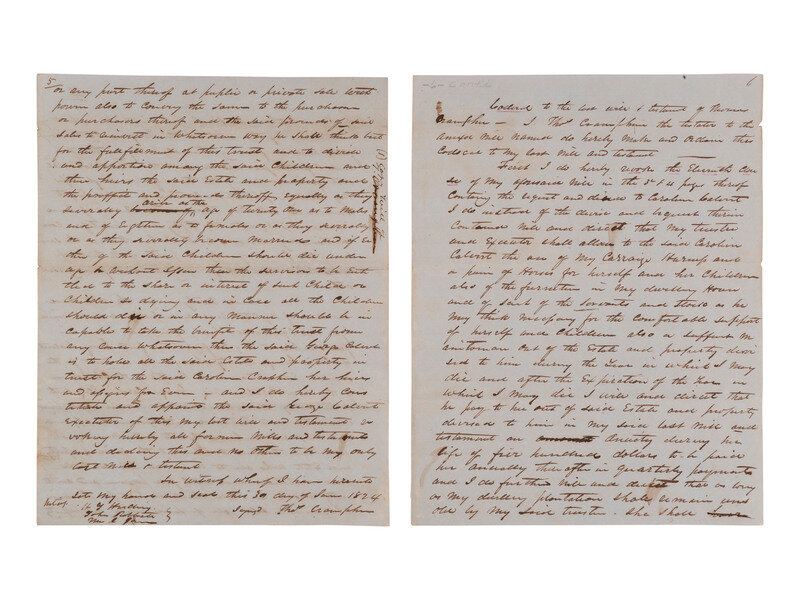 5
or any part thereof at public or private sale with
power also to Convey the same to the purchaser
or purchasers thereof and the said proceeds of said
sales to invest in Whatsoever way he shall think best
for the fulfillment of this trust and to divide
and apportion among the said Children and
their heirs the said Estate and property and
the proffits and proceeds thereoff equally as they
severally arive at the age of twenty one as to Males
and of Eighteen as to females or as they severally
or as they severally become Married and if
of the said Children should die under
age & without Issue then the survivors to be Enti
tled to the share or interest of such Child or
Children so dying and in Case all the Children
should die or in any Manner should be in
capable to take the benefit of this trust from
any Cause Whatsoever then the said George Calvert
is to hold all the said Estate and property in
trust for the said Caroline her heirs
and assigns for Ever - and I do hereby Cons
titute and appoint the said George Calvert
Executor of this my last will and testament re
voking hereby all former Wills and testaments
and declaring this and no other to be my only
last Will & testament
In witness whereof I have hereunto
sett my hand and seal this 30 day of June 1824
Signed Thos Cramphin
6
Codicil to the last will & testament of thomas
Cramphin - I Thos Cramphin the testator to the
annexed Will Named do hereby Make and Ordain this
Codocil to my last Will and testament
First I do hereby revoke the Eleventh Clau
se of My aforesaid Will in the 3d & 4 pages thereof
Containg the request and devise to Caroline Calvert
I do instead of the devise and bequest therein
Contained Will and direct that My trustee
and Executor shall allow to the said Caroline
Calvert the use of My Carraige Harness and
a pair of Horses for herself and her Children
also of the furneture in My dwelling House
and of such of the Servants and Stock as he
May think necessary for the Comfortable support
of herself and Children also a sufficient M
aintenance Out of the Estate and property devi
sed to him during the Year in which I May
die and after the Expiration of the Year in
Which I May die I will and direct that
he pay to her out of said Estate and property
devised to him in My said last Will and
testament an Anuity during her
life of five hundred dollars to be paid
her annually thereafter in quarterly payments
and I do further Will and direct that as long
as My dwelling plantation shall remain uns
old by My said trustee She Shall